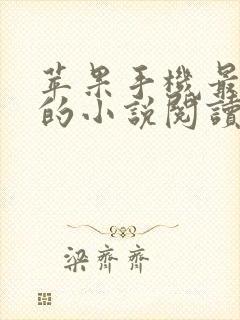 苹果手機最
的小說閱讀
梁齊齊